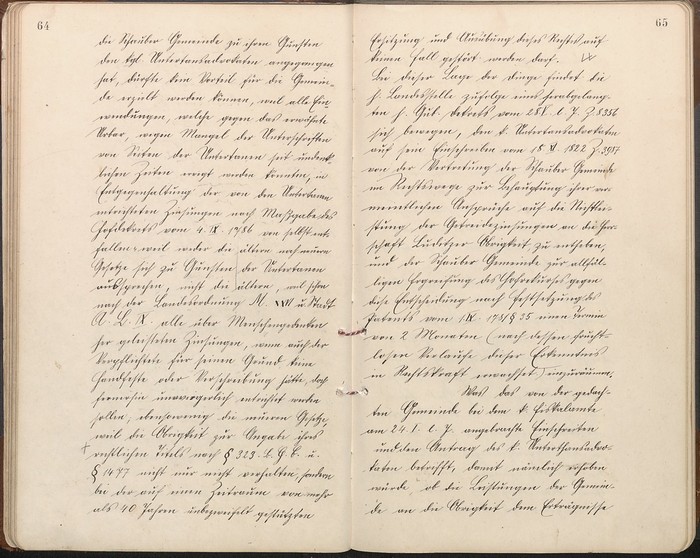 64
die Schauber Gemeinde zu ihren Gunsten
den kgl. Untertansadvokaten angegangen
hat, dürfte kein Vorteil für die Gemein-
de erzielt werden können, weil alle Ein
wendungen, welche gegen das erwähnte
Urbar, wegen Mangel der Unterschriften
von Seiten der Untertanen seit undenk
lichen Zeiten erregt werden konnten, in
Entgegenhaltung der von den Untertanen
entrichteten Zinsungen nach Maßgabe des
Hofdekrets vom 4. IX 1786 von selbst ent
fallen, weil weder die ältern noch neuern
Gesetze sich zu Gunsten der Untertanen
aussprechen, die ältern, weil schon
nach der Landesordnung M. u. Stadt
R. L. IX. alle über Menschengedenken
her geleisteten Zinsungen, wenn auch der
Verpflichtete für seinen Grund keine
Handfeste oder Verschreibung hätte, doch
fernerhin unweigerlich entrichtet werden
sollen, ebensowenig die neueren Gesetze,
weil die Obrigkeit zur Angabe ihres
rechtlichen Titels nach § 323. b. G. B. u.
§ 1477 nicht nur nicht verhalten, sondern
bei der auf einen Zeitraum von mehr
als 40 Jahren unbezweifelt gestützten
65
Ersitzung und Ausübung dieses Rechtes auf
keinen Fall gestört werden darf.
Bei dieser Lage der Dinge findet die
h. Landesstelle zufolge eines herabgelang-
ten h. Gub. dekrets vom 28 l. J. Z. 8356
sich bewogen, den k. Untertansadvokaten
auf sein Einschreiten vom 18 XI. 1822 Z. 3987
von der Vertretung der Schauber Gemeinde
im Rechtswege zur Behauptung ihrer ver
meintlichen Ansprüche auf die Nichtlei-
stung der Getreidezinsungen an die Herr-
schaft Luditzer Obrigkeit zu entheben,
und der Schauber Gemeinde zur allfäl-
ligen Ergreifung des Hofrekurses gegen
diese Entscheidung nach Festsetzung des
Patents vom 1. IX. 1781 § 35 einen Termin
von 2 Monaten (nach dessen frucht-
losen Verlaufe dieser Erkenntnis
in Rechtskraft erwachset) einzuräumen.
Was das von der gedach-
ten Gemeinde bei dem k. Fiskalamte
am 24. 1. l. J. angebrachte Einschreiten
und den Antrag des k. Unterthansadvo-
katen betrifft, damit nämlich erhoben
würde, ob die Leistungen der Gemein-
de an die Obrigkeit dem Erträgnisse